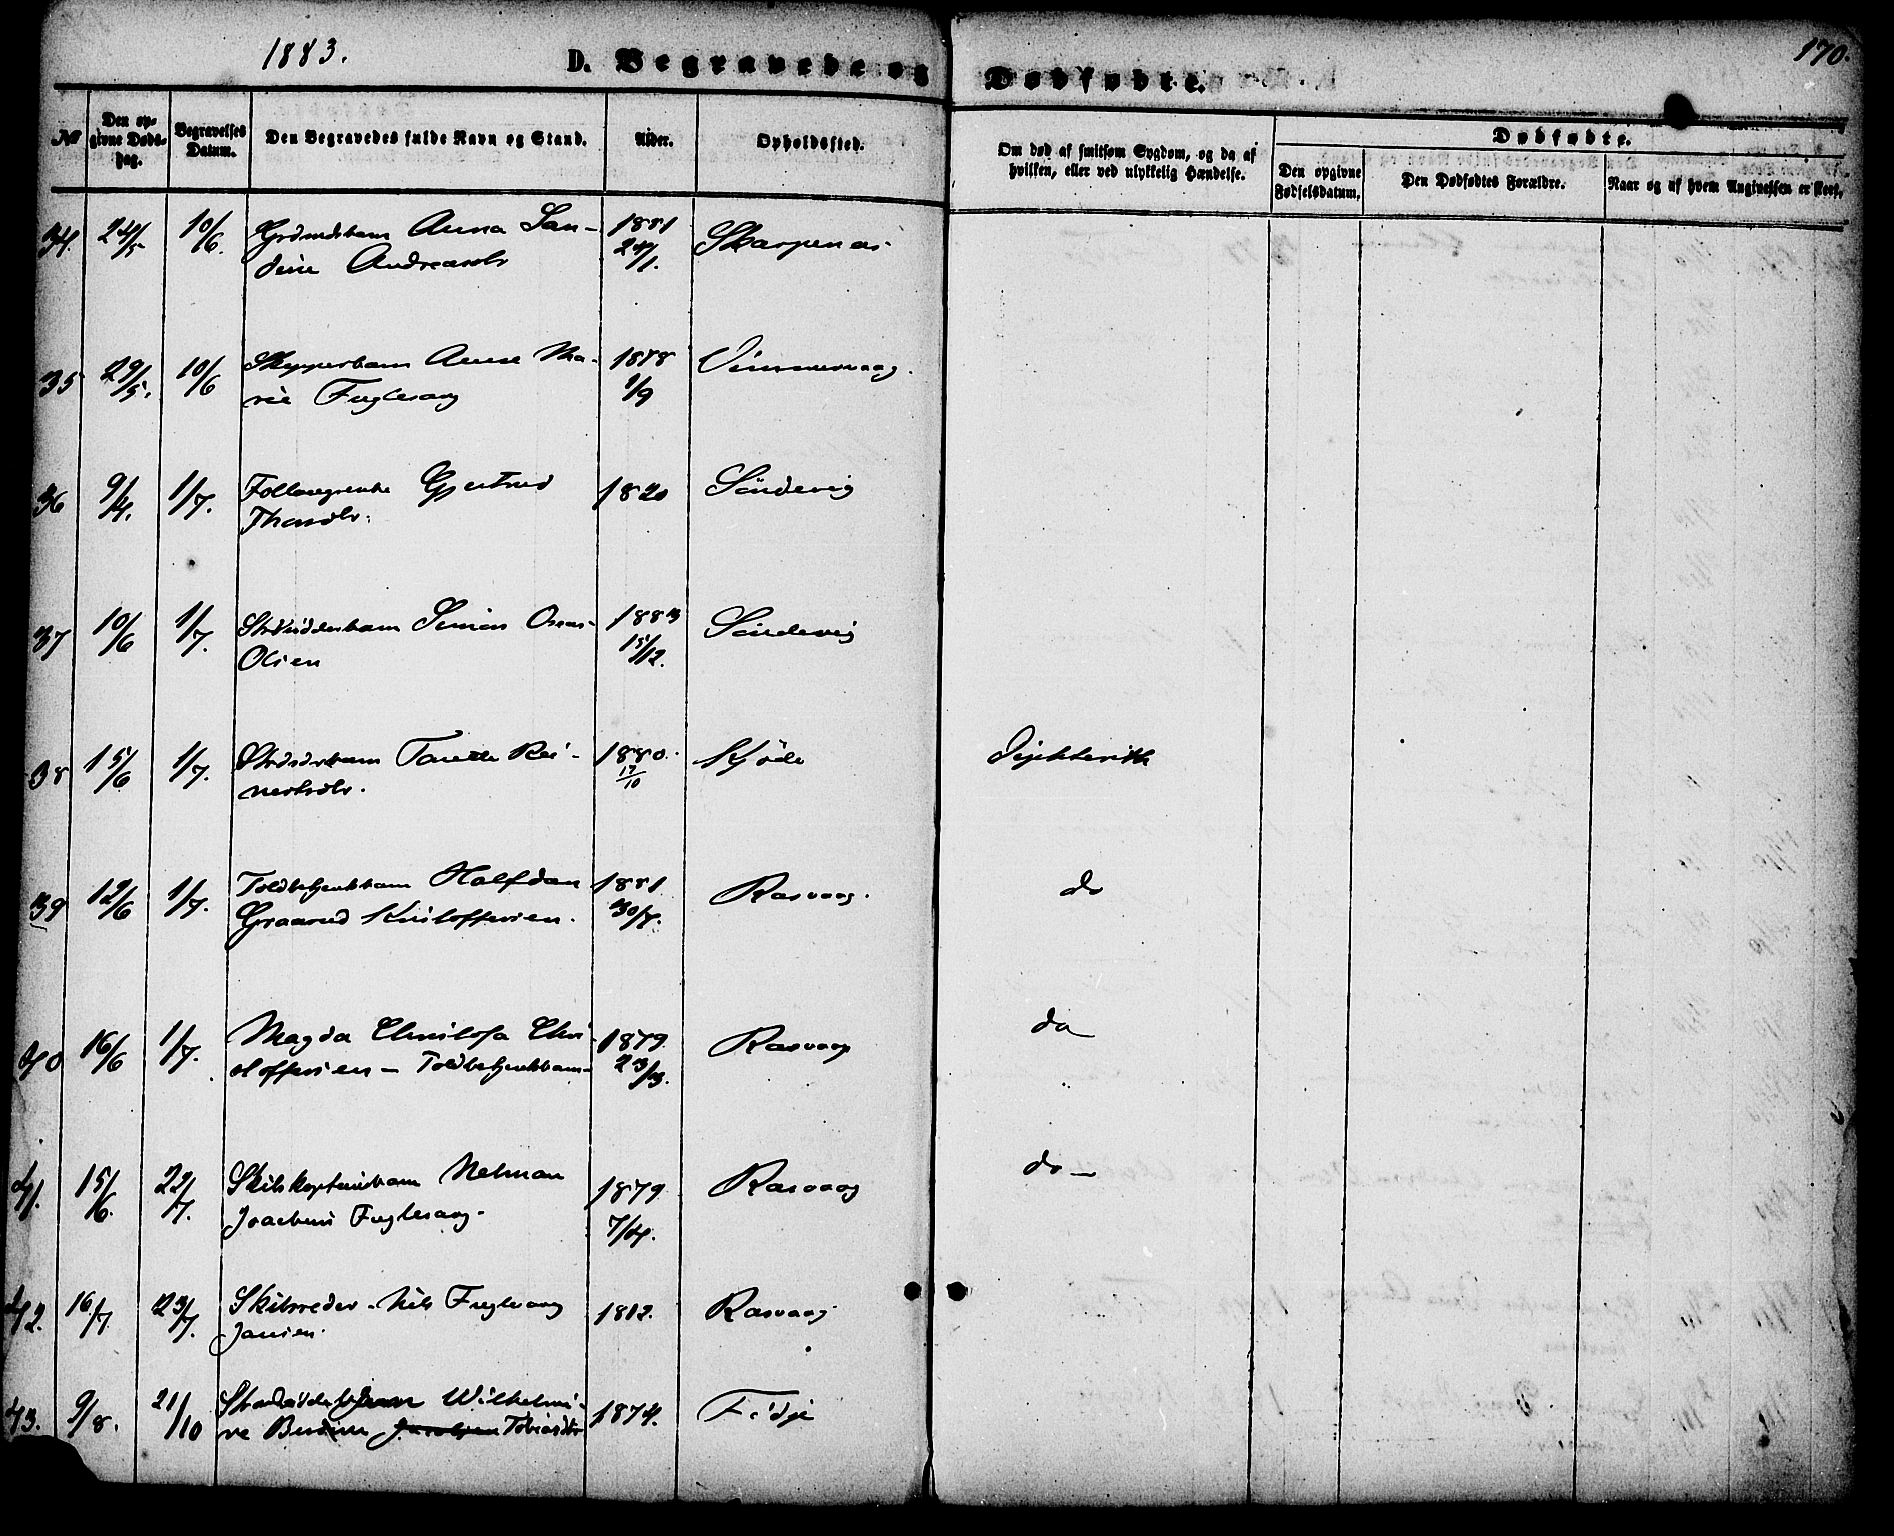 1883.
D. Begravede og Dødfødte.
170.
No
Den op-
givne Døds-
dag.
Begravelses
Datum.
Den Begravedes fulde Navn og Stand.
Alder.
Opholdssted.
Om død af smitsom Sygdom, og da af
hvilken, eller ved ulykkelig Hændelse.
Dødfødte.
Den opgivne
Fødselsdatum.
Den Dødfødtes Forældre.
Naar og af hvem Angivelsen er skeet.
34. 24/5 10/6. Anna San-
dine Andreasdtr 1881 24/1. Skarpenæs
35 29/5. 10/6 Skipperbarn Anne Ma-
rie Fuglevaag 1878 1/9
36 9/4. 1/7. Gjertrud
1820 Söndevig
37 10/6 1/7. Simon
Olsen 1883 15/12. Söndevig
38 15/6 1/7. 1880. 17/10
39 12/6 1/7. Toldbetjentbarn Halfdan
Graarud Kristoffersen. 1881 30/7. Rasvaag. do
40 16/6 1/7. Magda Christofa Chri-
stoffersen - Toldbetjentbarn 1879. 23/3. Rasvaag do
41. 15/6. 22/7. Skibskapteinbarn
Joachim Fuglevaag. 1879. 7/4. Rasvaag do -
42. 16/7 23/7. Skibsreder Nils Fuglevaag
Jansen. 1812. Rasvaag
43. 9/8. 21/10 Wilhelmi-
ne Tobiasdtr 1874.